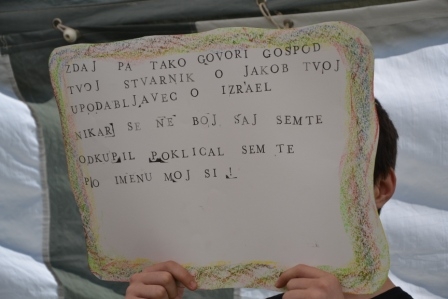 ZDAJ PA TAKO GOVORI GOSPOD
TVOJ STVARNIK O JAKOB TVOJ
UPODABLJAVEC O IZRAEL
NIKARJ SE NE BOJ SAJ SEMTE
ODKUPIL POKLICAL SEM TE
PO IMENU MOJ SI !